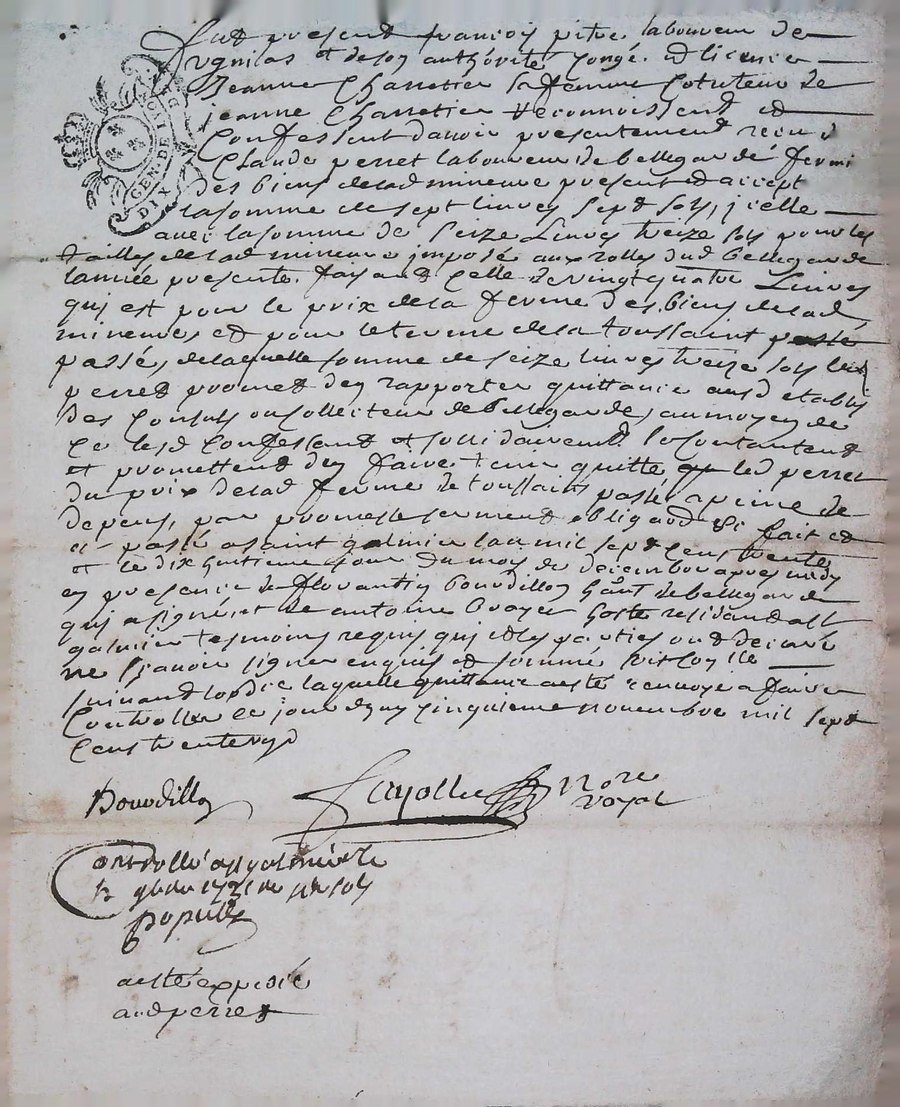 GEN. DE
DIX
fut present francois pitre laboureur de
et de son authórité congé et licence
Jeanne Charretier sa femme Cotuteur de
jeanne Charretier Reconnoissent et
Confessent davoir presentement receu d
Claude perret laboureur de bellegarde fermi
des biens de lad mineure present et accept
la somme de sept livres sept sols, jcelle
avec la somme de seize Livres treize sols pour les
tailles de lad mineure jmposé aux rolles dud bellegarde
lannée presente. faisant celle de vingt quatre Livres
qui est pour le prix de la ferme des biens de lad
mineure, et pour le terme de la toussaint
passé, de laquelle somme de seize livres treize sols led
perret promet den rapporter quittance aud établi
des Consuls ou Collecteur de bellegarde, au moyen de
ce lesd Confessant et sollidairement se Contantent
et promettent den faire tenir quitte led perret
du prix de lad ferme de toussaint passé, a peine de
depens, par promesse serment obligaōn &c fait et
passé a saint galmier lan mil sept cent trente
et le dix huitieme jour du mois de decembre apres midy
en presence de florantin bourdillon de bellegarde
qui a signé, et de antoine boyer hoste residant a st
galmier tesmoins requis qui et les parties ont declaré
ne sçavoir signer enquis et sommé
suivant lordce laquelle quittance a esté renvoyé a faire
Controller ce jourdhuy cinquieme novembre mil sept
cens trente un
Bourdillon
fayolle nore
royal
Controllé a st galmier le
5e 9bre 1731 six sols
a esté expedié
aud perret